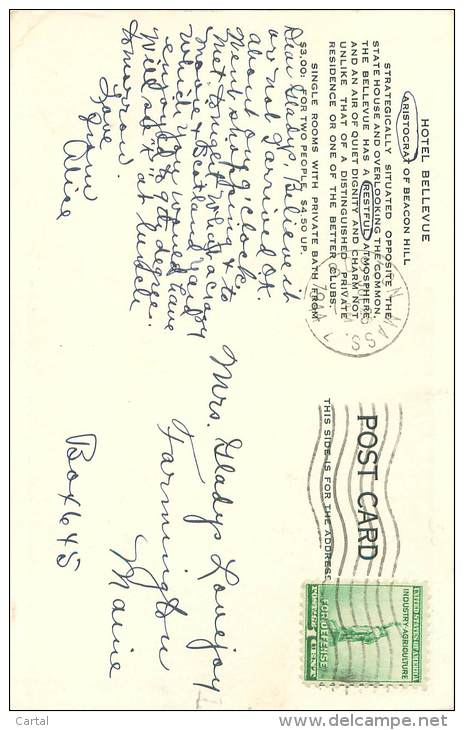 HOTEL BELLEVUE
ARISTOCRAT OF BEACON HILL
STRATEGICALLY SITUATED OPPOSITE THE
STATE HOUSE AND OVERLOOKING THE COMMON,
THE BELLEVUE HAS A RESTFUL ATMOSPHERE
AND AN AIR OF QUIET DIGNITY AND CHARM NOT
UNLIKE THAT OF A DISTINGUISHED PRIVATE
RESIDENCE OR ONE OF THE BETTER CLUBS.
SINGLE ROOMS WITH PRIVATE BATH FROM
$3.00; FOR TWO PEOPLE, $4.50 UP.
Dear Gladys, Believe it
or not I arrived OK
about
Went shopping & to
met tonight
movie
which you would have
enjoyed to nth degree.
Will ask "it" at lunch
tomorrow
Love
from
Alice
N, MASS.
POST CARD
THIS SIDE IS FOR THE ADDRESS
UNITED STATES OF AMERICA
INDUSTRY·AGRICULTURE
FOR DEFENSE
POSTAGE 1 CENT
Mrs. Gladys Lovejoy
Farmington
Maine
Box 645
Cartal
www.delcampe.net